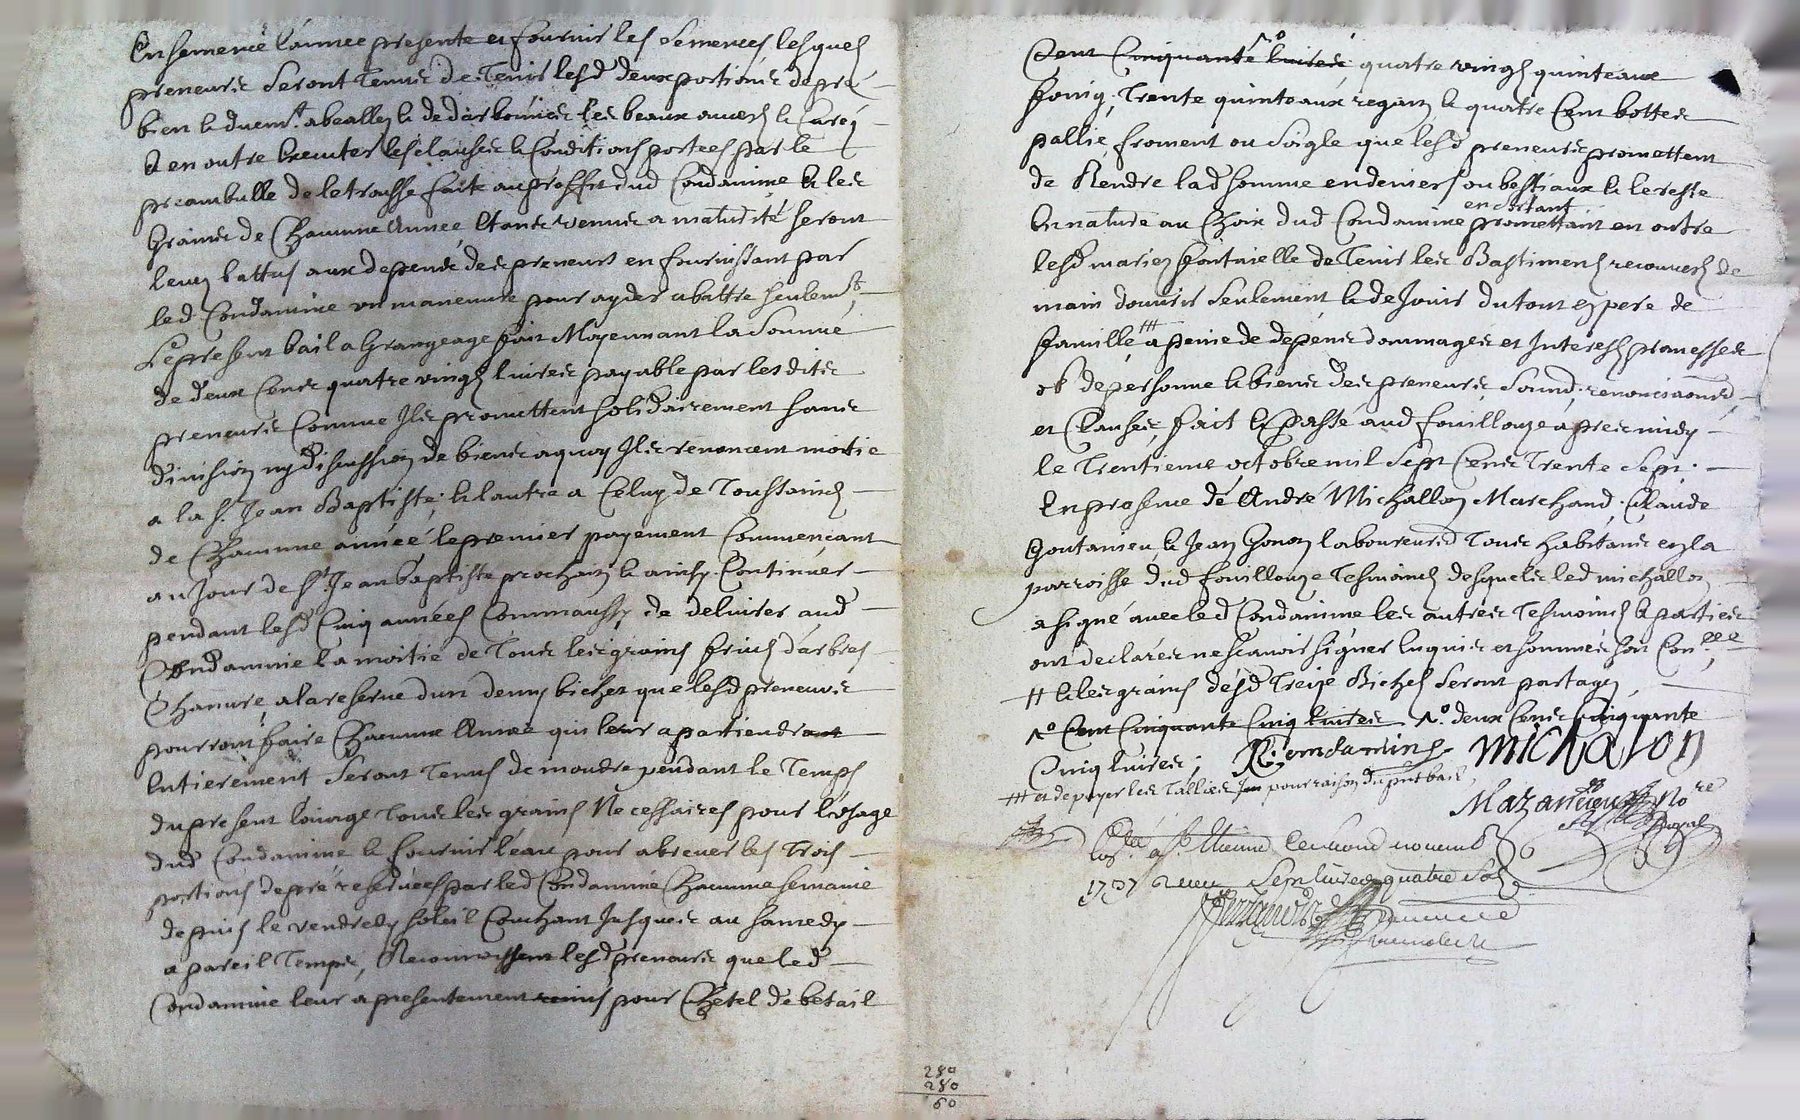 Ensemencé lannee presente et fournir les semences lesquels
preneurs seront tenus de tenir lesd deux portions de pré
bien et duemt abeallez et de
et en outre executer les clauses et conditions portees par le
preambulle de letrousse faite au proffit dud Condamine et les
grains de chacunne annee etans venus a maturité seront
levez battus aux depens des preneurs en fournissant par
led Condamine un maneuvre pour ayder abattre seulemt,
Le present bail a grangeage fait moyennant la somme
de deux cens quatre vingts livres payable par lesdits
preneurs comme ils promettent solidairement sans
division ny discussion de biens aquoy ils renoncent moitie
a la St Jean Baptiste, et lautre a celuy de Toussaincts
de chacunne année, le premier payement commencant
au jour de St Jean baptiste prochain et ainsy continuer
pendant lesd cinq années commaussy de delivrer aud
Condamine la moitié de tous les grains fruits darbres
chanvre a la reserve dun demy bichet que lesd preneurs
pourront faire chacunne année qui leur apartiendra
entierement seront tenus de moudre pendant le temps
du present louage tous les grains necessaires pour lusage
dud Condamine et fournir leau pour abreuer les trois
portions de pré reservées par led Condamine chacunne semaine
depuis le vendredy soleil couchant jusques au samedy
a pareil temps, Reconnoissent lesd preneurs que led
Condamine leur a presentement remis pour chetel de betail
Cent cinquante livres No quatre vingts quinteaux
foing, trente quinteaux regain et quatre cent bottes
pallie froment ou soigle que lesd preneurs promettent
de Rendre lad somme en deniers ou bestiaux et le reste
en nature au choix dud Condamine en sortant promettant en outre
lesd mariez fontvielle de tenir les bastimens recouverts de
main douvrir seulement et de jouir du tout en pere de
famille ttt a peine de depens dommages et interests promesses
ob de personne et biens des preneurs, soumd, renonciaoned,
et clauses, fait et passé aud fouillouze apres midy
le trentieme octobre mil sept cens trente sept.
En presence de André Michallon Marchand, Claude
et Jean Gonon laboureurs tous habitans en la
parroisse dud fouillouze tesmoincts desquels led michallon
a signé avec led Condamine les autres tesmoincts et parties
ont declarés ne scavoir signer enquis et sommés soit Conllé
tt et les grains desd treize Bichets seront partagez
No Cent Cinquante Cinq livres No. deux cens cinquante
Cinq livres; R. Condamine michalon
ttt et de payer les tallies pour raison du pnt bail
Mazandieu Nore
Royal
Conllé a St Etienne le second novemb
1737 Receu sept livres quatre sols
280
280
60